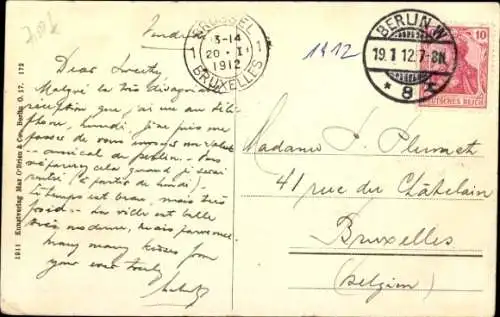 Vendredi
Dear Sweety
Malgré la très désagréable
réception que j'ai eue au télé-
phone, lundi, je ne puis me
passer de vous envoyer un
amical de Berlin.
cela quand je serai
rentré (à partir de lundi).
Le temps est beau, mais très
froid. La ville est belle
très moderne, mais
many many kisses from
your ever truly
BRUSSEL
3-14
1 20 I 1
1912
BRUXELLES
1912
BERLIN W
19.1.12.7-8N.
* 8
10
DEUTSCHES REICH
Madame J.
41 rue du Châtelain
Bruxelles
(Belgien)
1911 Kunstverlag Max O'Brien & Co., Berlin O. 17. 172